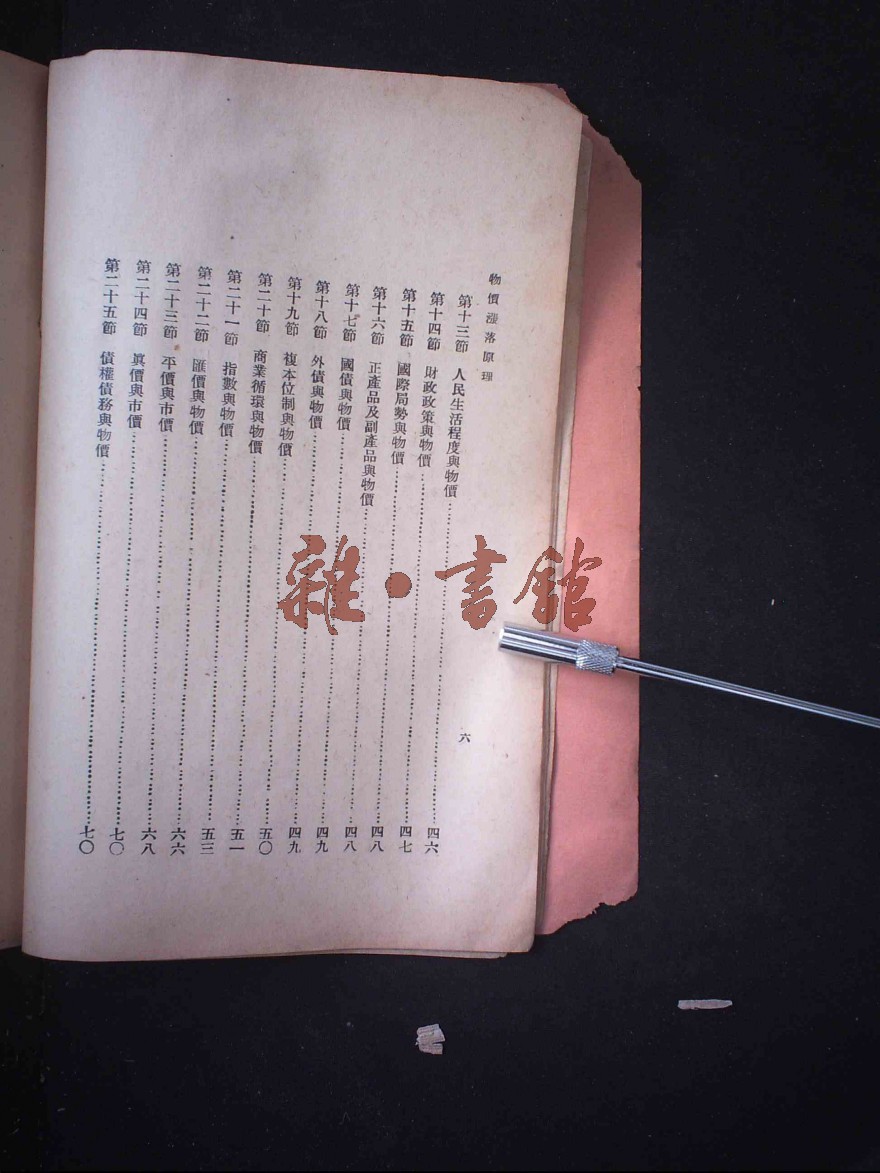 物價漲落原理
六
第十三節 人民生活程度與物價……四六
第十四節 財政政策與物價……四七
第十五節 國際局勢與物價……四八
第十六節 正產品及副產品與物價……四八
第十七節 國債與物價……四九
第十八節 外債與物價……四九
第十九節 複本位制與物價……五〇
第二十節 商業循環與物價……五一
第二十一節 指數與物價……五三
第二十二節 匯價與物價……六六
第二十三節 平價與市價……六八
第二十四節 眞價與市價……七〇
第二十五節 債權債務與物價……七〇
雜·書館